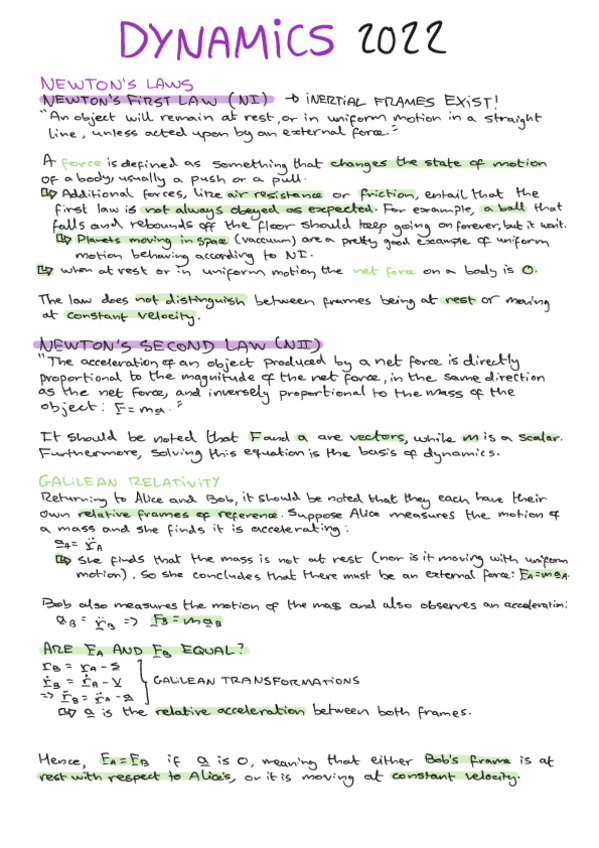 DYNAMICS 2022
NEWTON'S LAWS
NEWTON'S FIRST LAW (NI) → INERTIAL FRAMES EXIST!
"An object will remain at rest, or in uniform motion in a straight
line, unless acted upon by an external force."
A force is defined as something that changes the state of motion
of a body, usually a push or a pull.
↳ Additional forces, like air resistance or friction, entail that the
first law is not always obeyed as expected. For example, a ball that
falls and rebounds off the floor should keep going on forever, but it won't.
↳ Planets moving in space (vaccuum) are a pretty good example of uniform
motion behaving according to NI.
↳ when at rest or in uniform motion, the net force on a body is 0.
The law does not distinguish between frames being at rest or moving
at constant velocity.
NEWTON'S SECOND LAW (NII)
"The acceleration of an object produced by a net force is directly
proportional to the magnitude of the net force, in the same direction
as the net force, and inversely proportional to the mass of the
object: F=ma."
It should be noted that F and a are vectors, while m is a scalar.
Furthermore, solving this equation is the basis of dynamics.
GALILEAN RELATIVITY
Returning to Alice and Bob, it should be noted that they each have their
own relative frames of reference. Suppose Alice measures the motion of
a mass and she finds it is accelerating:
a_A = r̈_A
↳ She finds that the mass is not at rest (nor is it moving with uniform
motion), so she concludes that there must be an external force: F_A=ma_A.
Bob also measures the motion of the mass and also observes an acceleration:
a_B = r̈_B => F_B=ma_B
ARE F_A AND F_B EQUAL?
r_B = r_A - s
ṙ_B = ṙ_A - v } GALILEAN TRANSFORMATIONS
=> r̈_B = r̈_A - a
↳ a is the relative acceleration between both frames.
Hence, F_A=F_B if a is 0, meaning that either Bob's frame is at
rest with respect to Alice's, or it is moving at constant velocity.